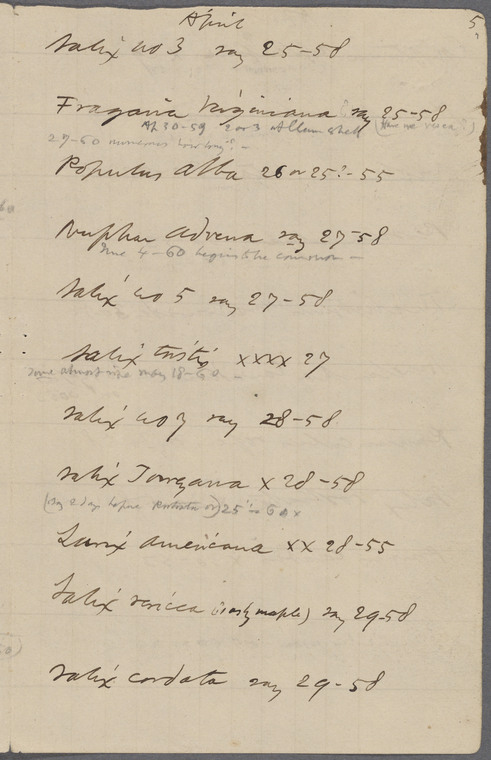 April
5
Salix no 3 say 25-58
Fragaria Virginiana say 25-58
Ap 30-59 2 or 3
27-60 numerous how long? -
Populus alba 26 or 25?-55
Nuphar advena say 27-58
June 4-60 begins to be common -
Salix no 5 say 27-58
Salix tristis xxxx 27
some almost ripe May 18-60 -
Salix no 7 say 28-58
Salix Torreyana x 28-58
(say 2 days before 25-60 x
Larix americana xx 28-55
Salix sericea say 29-58
Salix cordata say 29-58